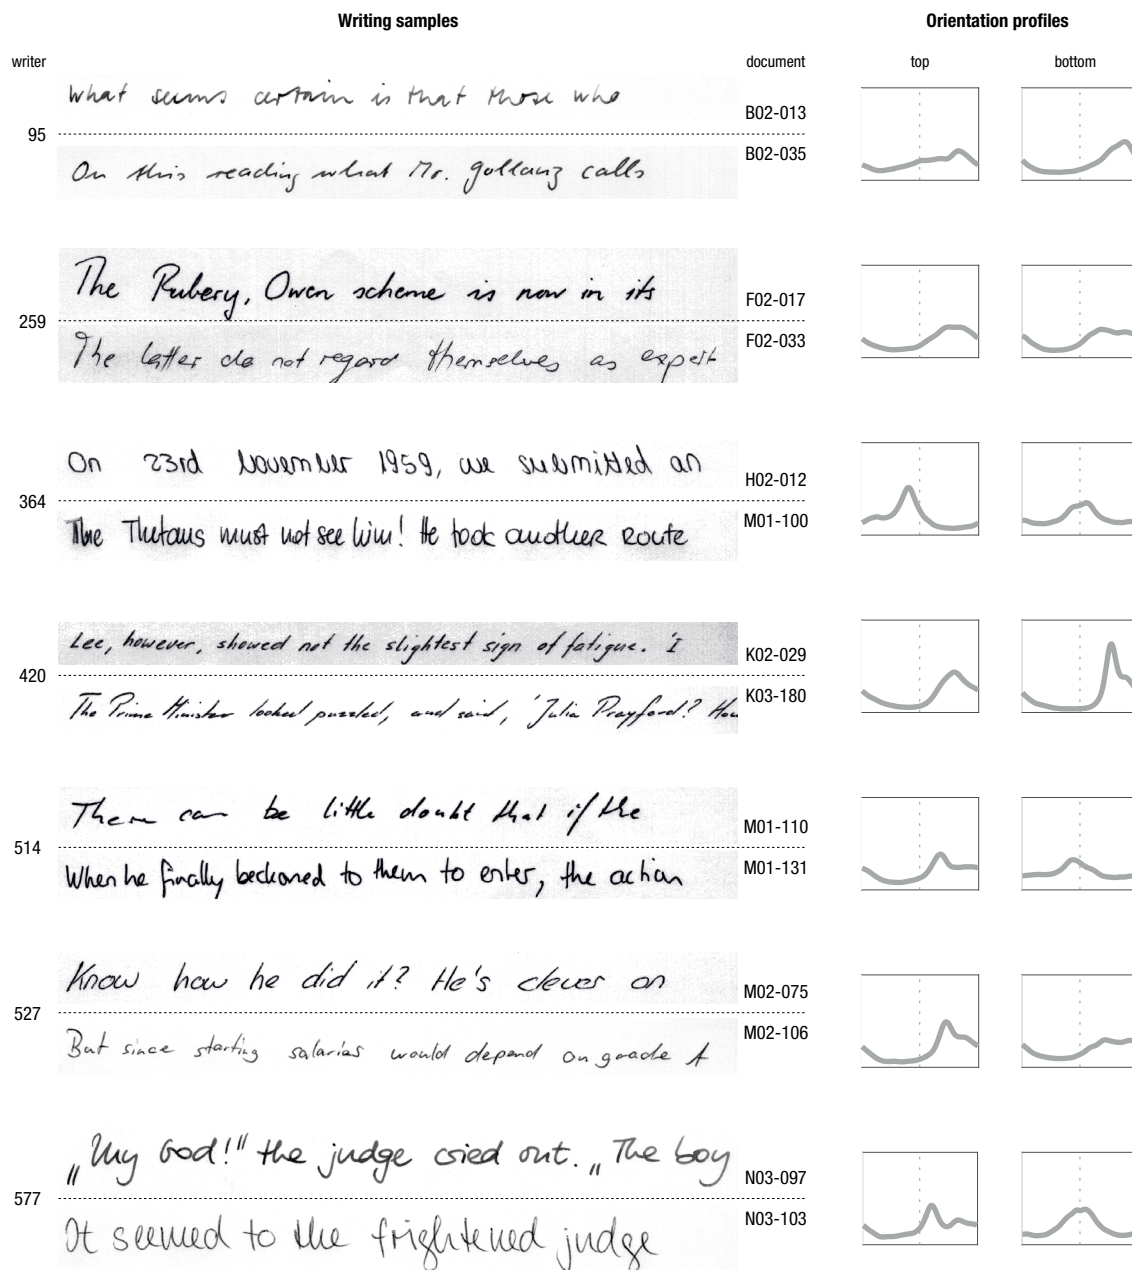 Writing samples Orientation profiles
writer document top bottom
What seems certain is that those who B02-013
95
On this reading what Mr. Gollanz calls B02-035
The Rubery, Owen scheme is now in its F02-017
259
The latter do not regard themselves as expert F02-033
On 23rd November 1959, we submitted an H02-012
364
The Thetans must not see him! He took another Route M01-100
Lee, however, showed not the slightest sign of fatigue. 'I K02-029
420
The Prime Minister looked puzzled, and said, 'Julia Prayford? How K03-180
There can be little doubt that if the M01-110
514
When he finally beckoned to them to enter, the action M01-131
Know how he did it? He's clever on M02-075
527
But since starting salaries would depend on grade A M02-106
„My God!" the judge cried out. „The boy N03-097
577
It seemed to the frightened judge N03-103